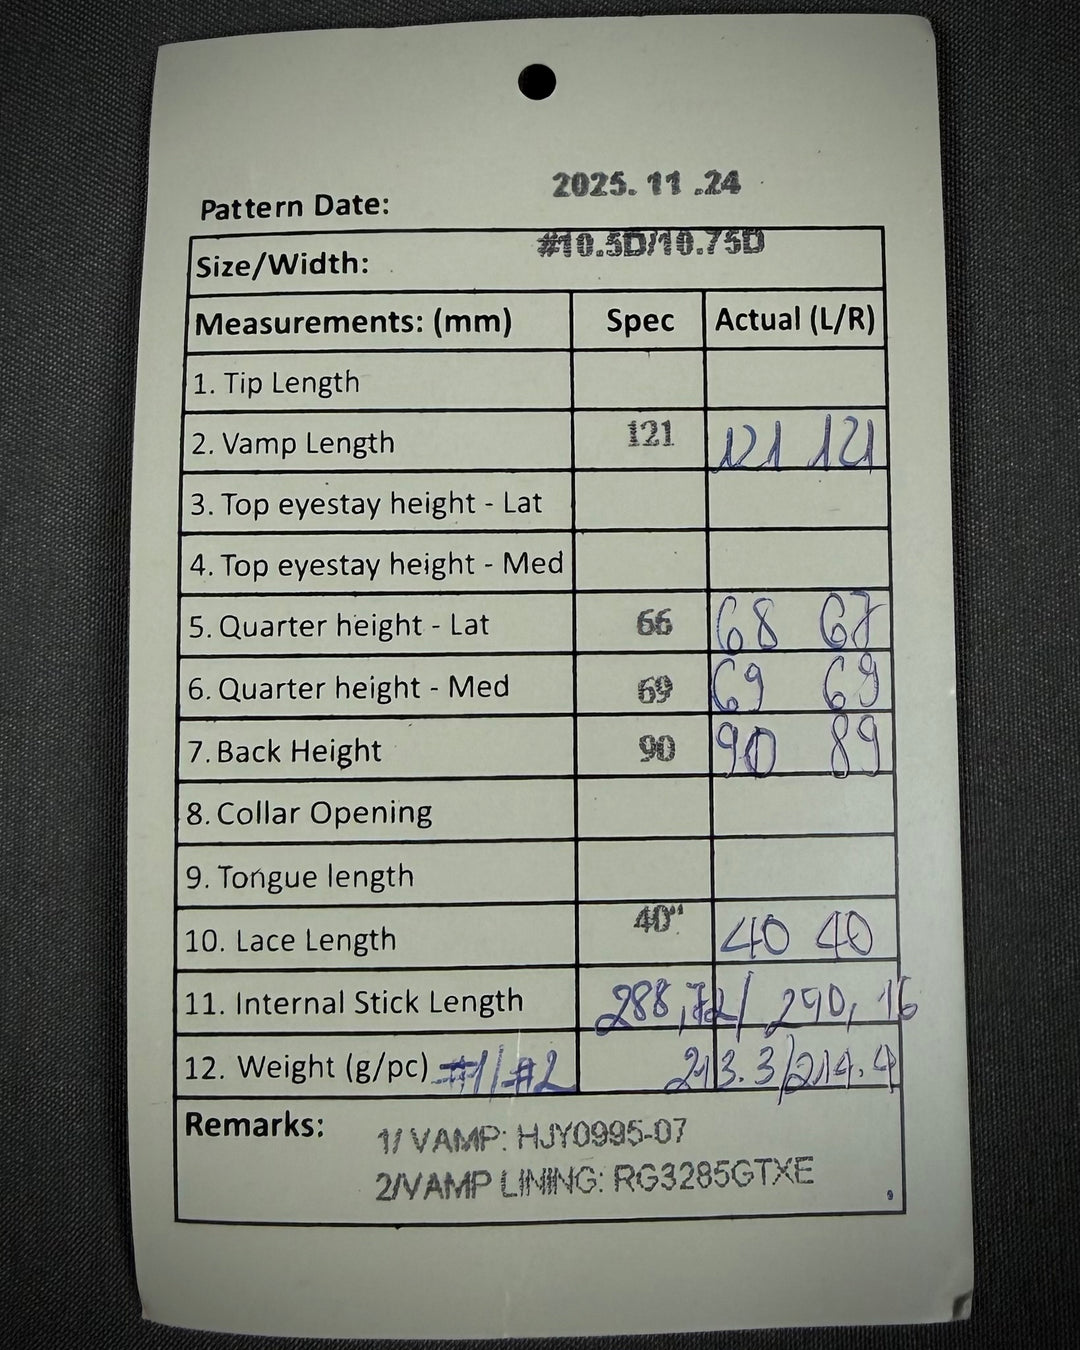 Pattern Date: 2025. 11 .24
Size/Width: #10.5D/10.75D
Measurements: (mm) Spec Actual (L/R)
1. Tip Length
2. Vamp Length 121 121 121
3. Top eyestay height - Lat
4. Top eyestay height - Med
5. Quarter height - Lat 66 68 67
6. Quarter height - Med 69 69 69
7. Back Height 90 90 89
8. Collar Opening
9. Tongue length
10. Lace Length 40" 40 40
11. Internal Stick Length 288,72/ 290, 16
12. Weight (g/pc) #1/#2 213.3/214.4
Remarks: 1/ VAMP: HJY0995-07
2/VAMP LINING: RG3285GTXE